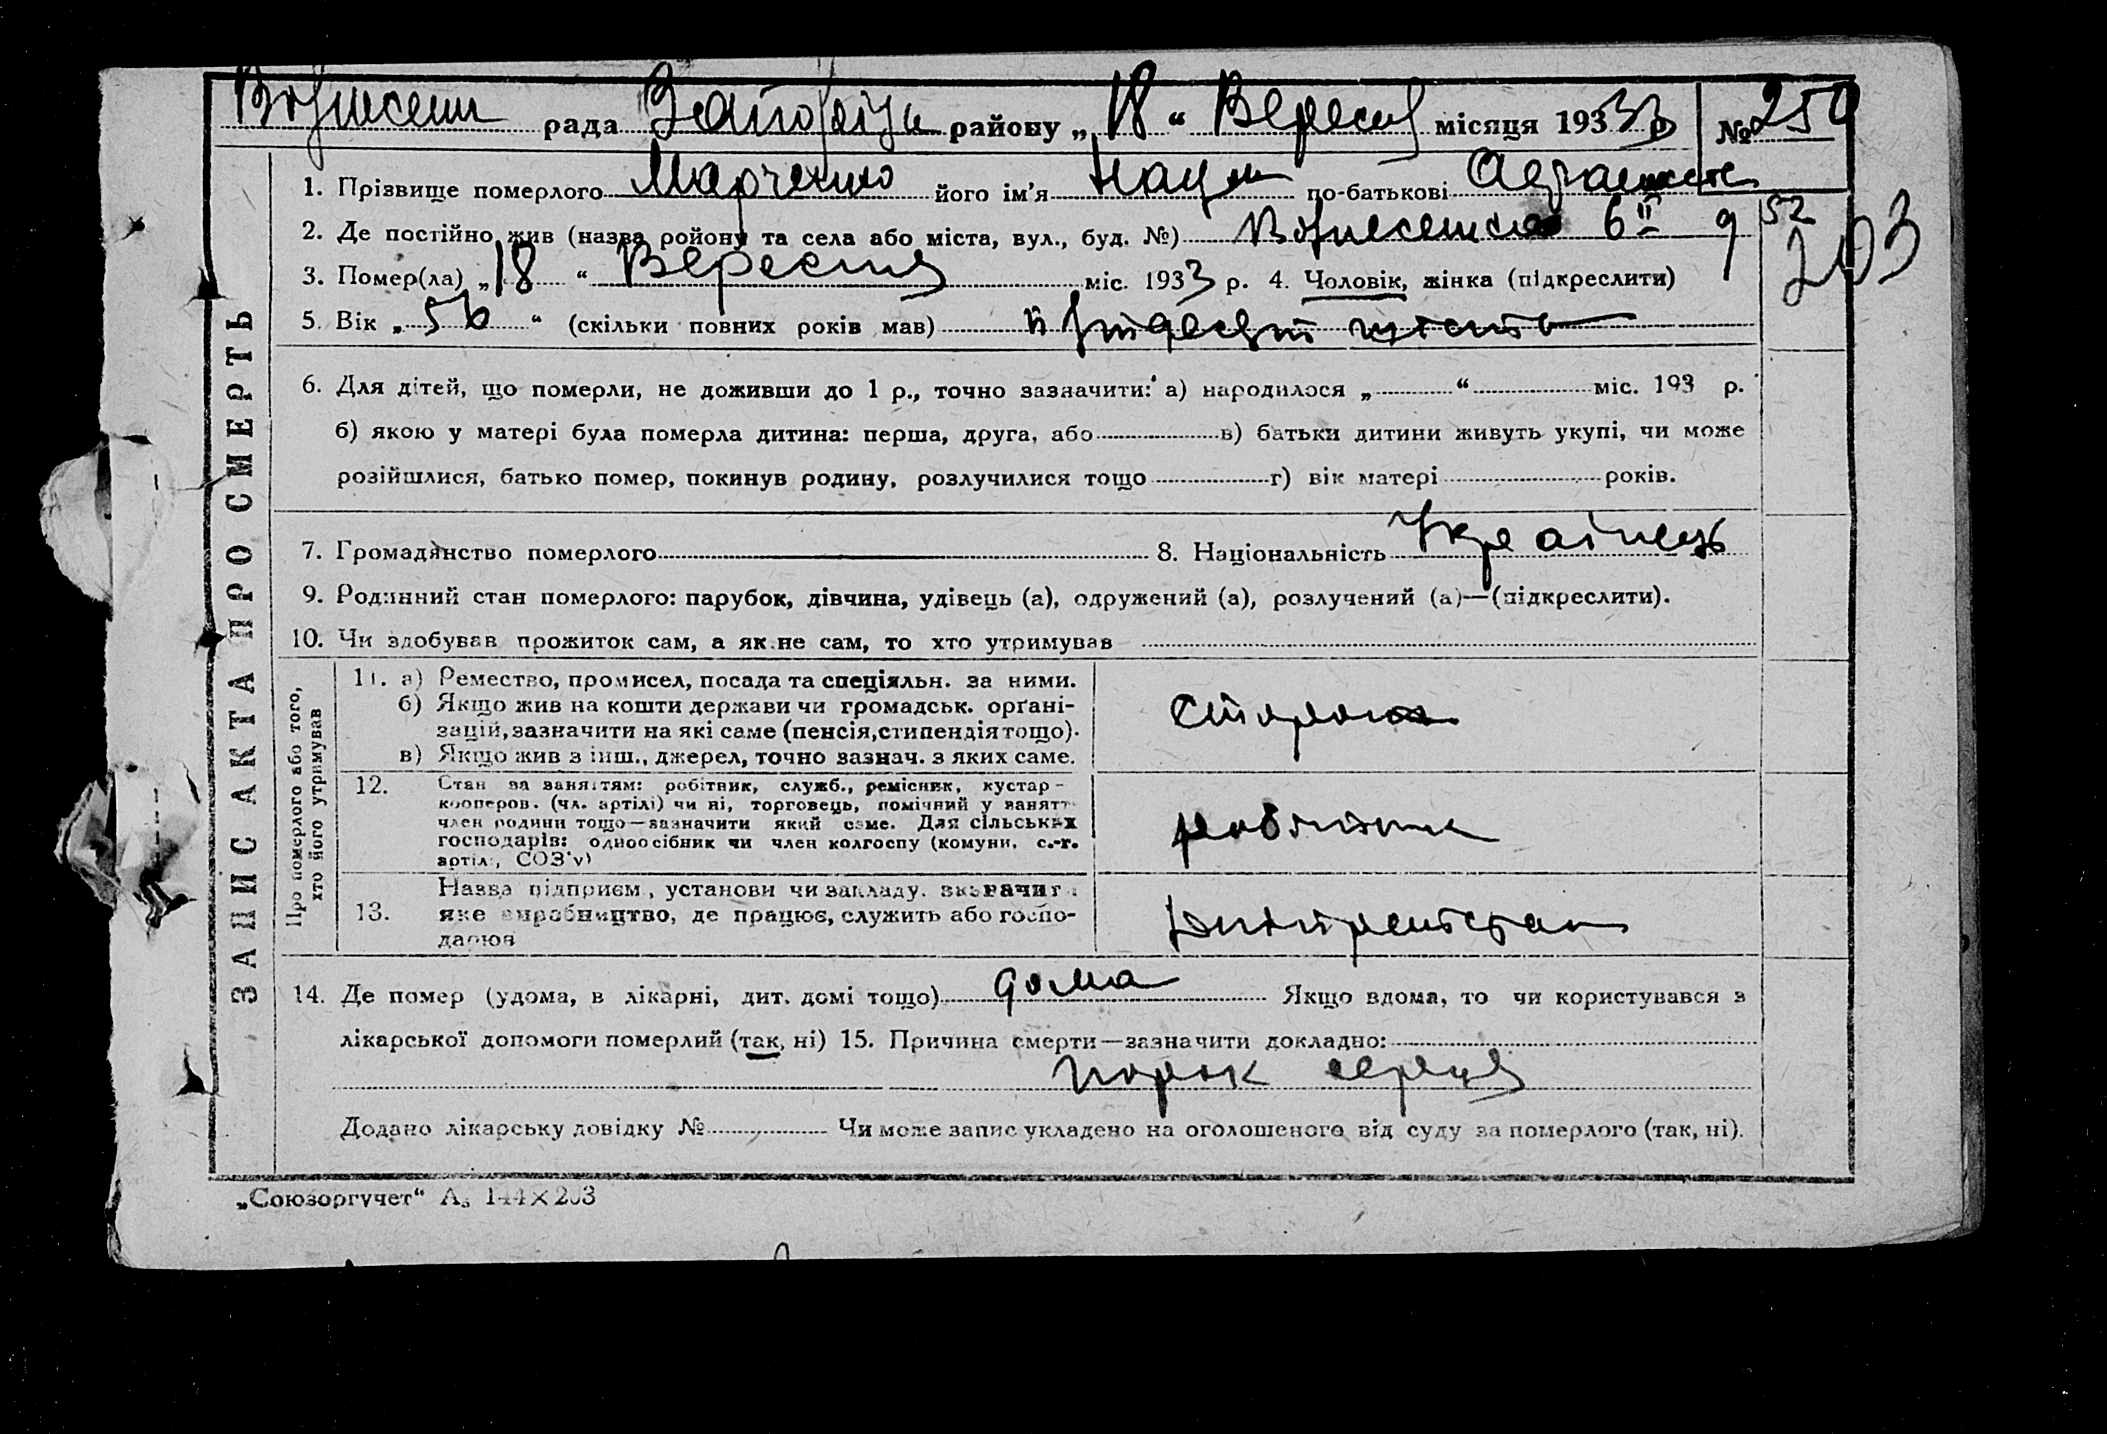 Вознесен рада Запоріз району „18“ Вересня місяця 1933 р №250
1. Прізвище померлого Марченко його ім'я Наум по-батькові
2. Де постійно жив (назва ройону та села або міста, вул., буд. №) Вознесенка 6 II 9 52
203
3. Помер(ла) „18“ Вересня міс. 1933 р. 4. Чоловік, жінка (підкреслити)
5. Вік „56“ (скільки повних років мав) пятдесят шість
6. Для дітей, що померли, не доживши до 1 р., точно зазначити: а) народилося „ “ міс. 193 р.
б) якою у матері була померла дитина: перша, друга, або в) батьки дитини живуть укупі, чи може
розійшлися, батько помер, покинув родину, розлучилися тощо г) вік матері років.
7. Громадянство померлого 8. Національність Українець
9. Родинний стан померлого: парубок, дівчина, удівець (а), одружений (а), розлучений (а)—(підкреслити).
10. Чи здобував прожиток сам, а як не сам, то хто утримував
ЗАПИС АКТА ПРО СМЕРТЬ
Про померлого або того, хто його утримував
11. а) Ремество, промисел, посада та спеціяльн. за ними.
б) Якщо жив на кошти держави чи громадськ. орґані-
зацій, зазначити на які саме (пенсія, стипендія тощо).
в) Якщо жив з інш., джерел, точно зазнач. з яких саме.
сторож
12. Стан за заняттям: робітник, служб., ремісник, кустар-
кооперов. (чл. артілі) чи ні, торговець, помічний у занятт
член родини тощо—зазначити який саме. Для сільських
господарів: одноосібник чи член колгоспу (комуни, с.-г.
артіл., СОЗ'у)
робітник
13. Назва підприєм., установи чи закладу. зазначит
яке виробництво, де працює, служить або госпо-
дарює
14. Де помер (удома, в лікарні, дит. домі тощо) дома Якщо вдома, то чи користувався з
лікарської допомоги померлий (так, ні) 15. Причина смерти—зазначити докладно:
порок серця
Додано лікарську довідку № Чи може запис укладено на оголошеного від суду за померлого (так, ні).
„Союзоргучет“ А₅ 144×203